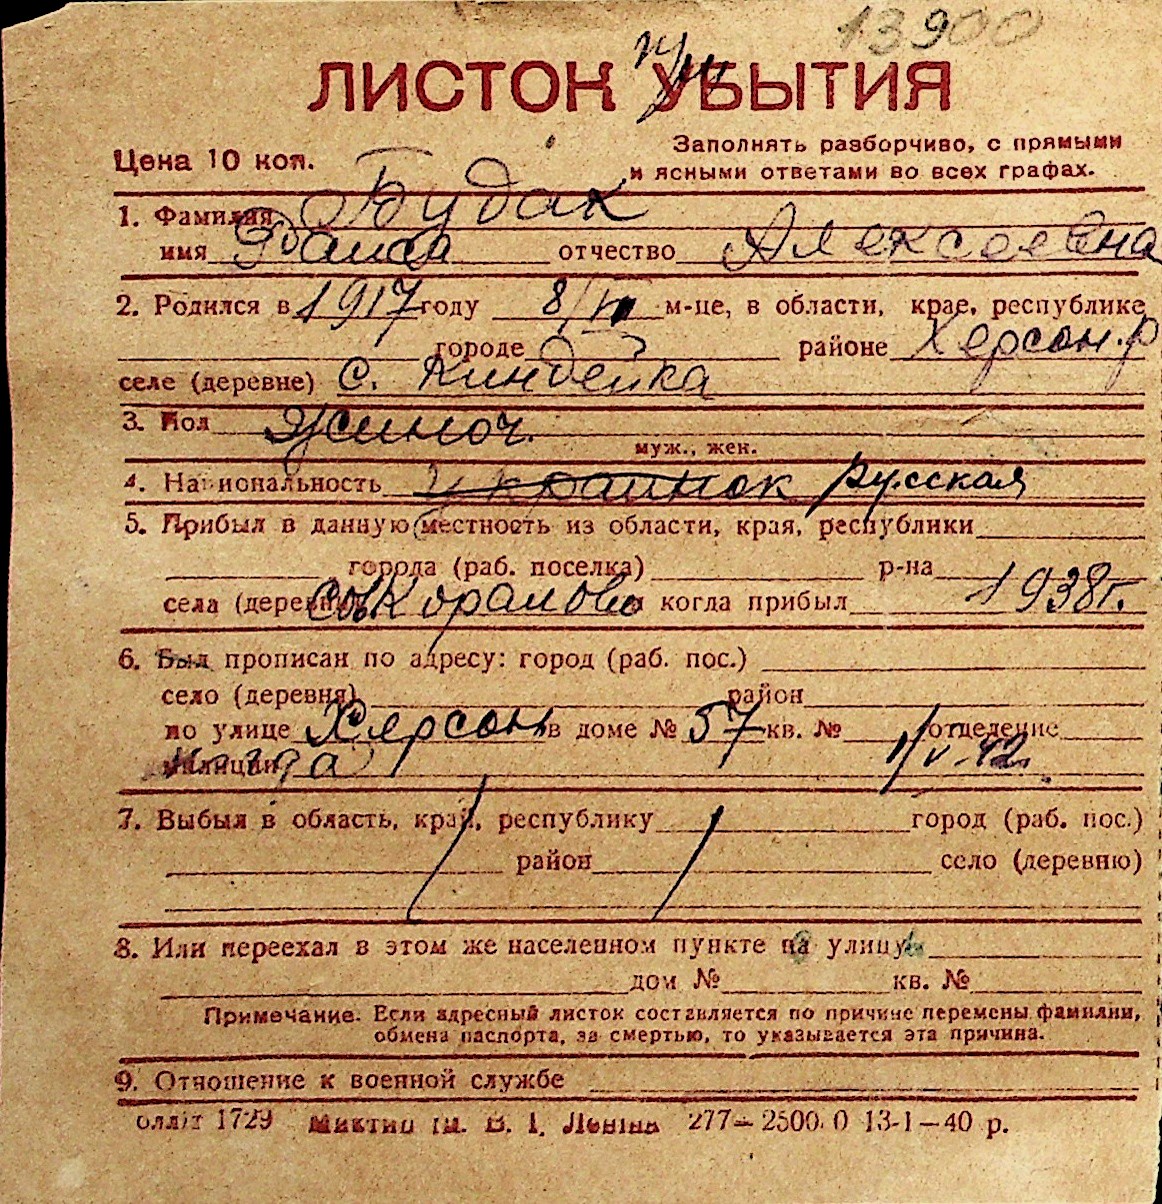 13900
ЛИСТОК УБЫТИЯ
Цена 10 коп.
Заполнять разборчиво, с прямыми
и ясными ответами во всех графах.
1. Фамилия Будак
имя Раиса отчество Алексеевна
2. Родился в 1917 году 8/ м-це, в области, крае, республике
городе районе Херсон. р
селе (деревне) с. Киндейка
3. Пол Жиноч.
муж., жен.
4. Национальность Украинок русская
5. Прибыл в данную местность из области, края, республики
города (раб. поселка) р-на
села (деревни) и когда прибыл 1938г.
6. Был прописан по адресу: город (раб. пос.)
село (деревня) район
по улице Херсон в доме № 57 кв. № отделение
милиции 1/V-42
7. Выбыл в область, край, республику город (раб. пос.)
район село (деревню)
8. Или переехал в этом же населенном пункте на улицу
дом № кв. №
Примечание. Если адресный листок составляется по причине перемены фамилии,
обмена паспорта, за смертью, то указывается эта причина.
9. Отношение к военной службе
1729 В. І. Леніна 277—2500.0 13-1—40 р.